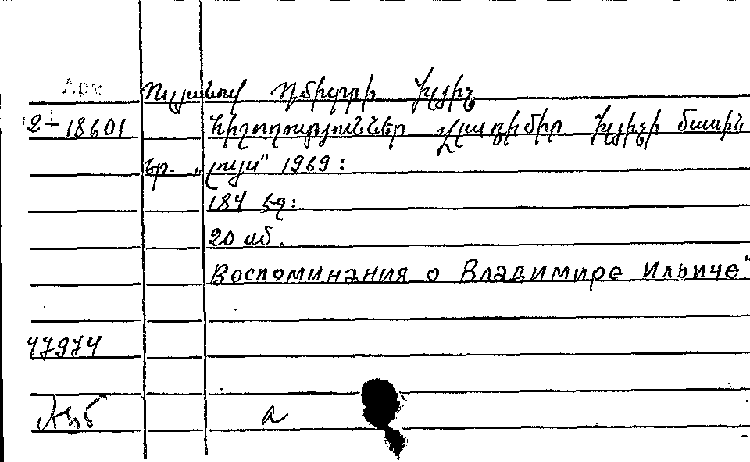 Арм
Ուլյանով Դմիտրի Իլյիչ
2-18601
Հիշողություններ Վլադիմիր Իլյիչի մասին
Եր. „Լույս" 1969:
184 էջ:
20 սմ.
Воспоминания о Владимире Ильиче"
47974
а